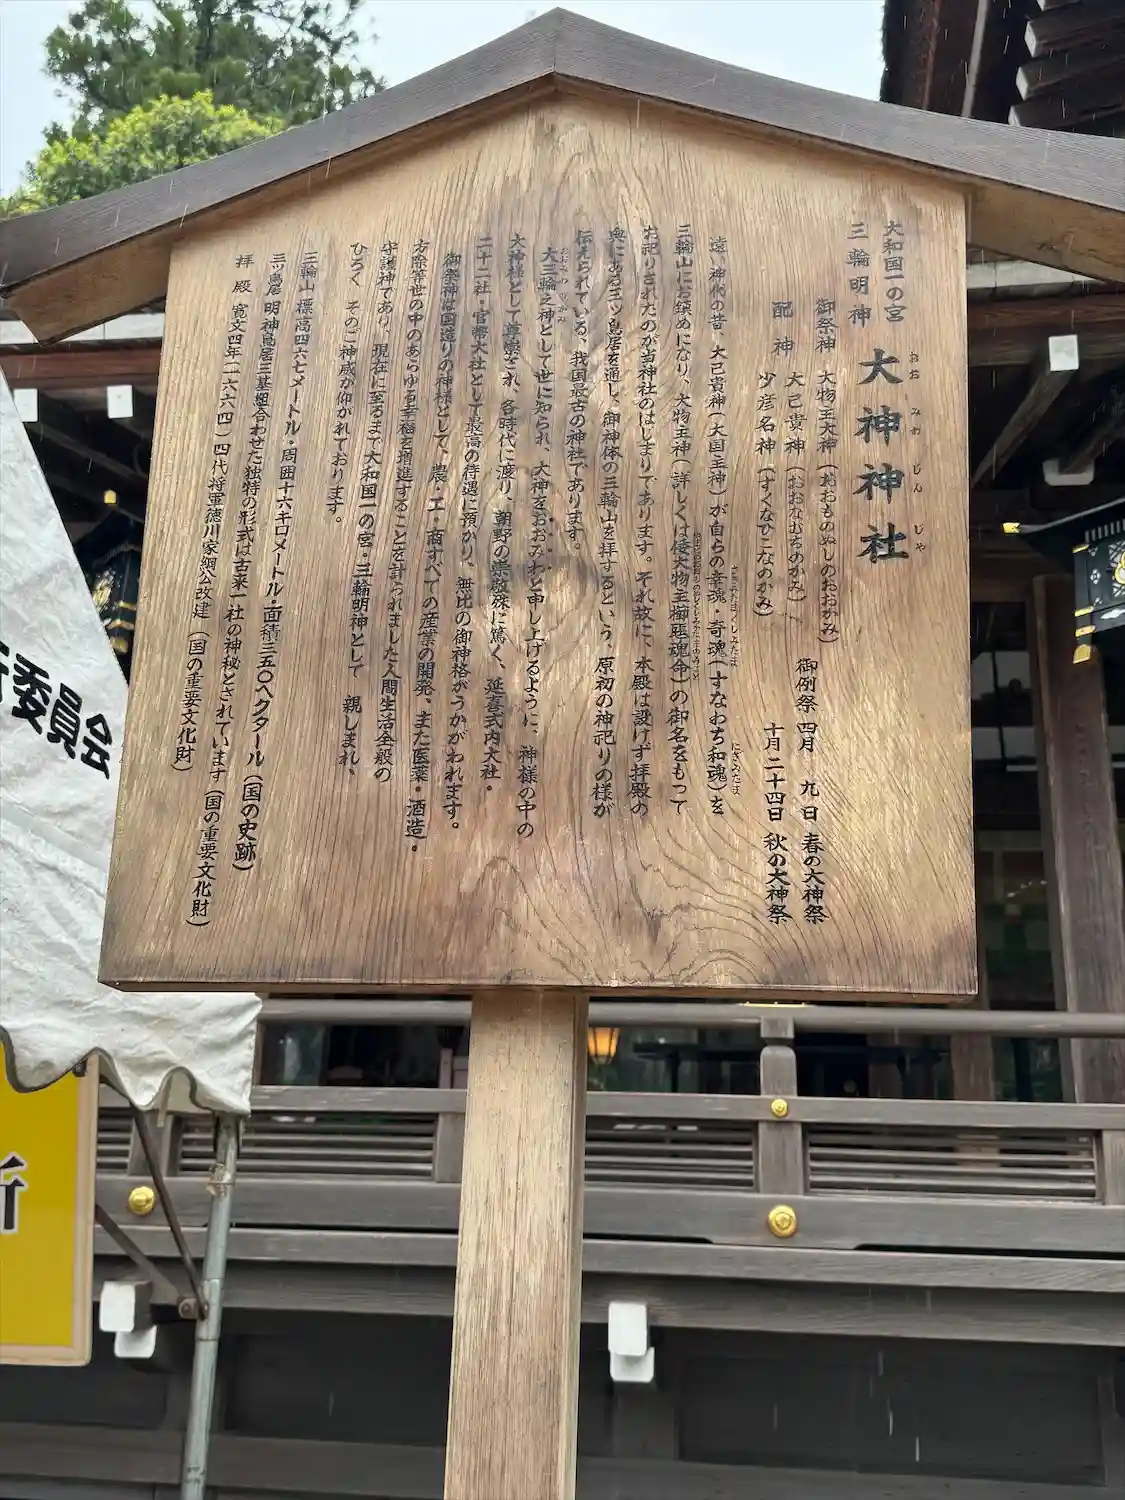 大和国一の宮
三輪明神
大神神社
おお みわ じん じゃ
御祭神 大物主大神(おおものぬしのおおかみ)
配神 大己貴神(おおなむちのかみ)
少彦名神(すくなひこなのかみ)
御例祭 四月 九日 春の大神祭
十月二十四日 秋の大神祭
遠い神代の昔、大己貴神(大国主神)が自らの幸魂・奇魂(すなわち和魂)を
さきみたまくしみたま
にぎみたま
三輪山にお鎮めになり、大物主神(詳しくは倭大物主櫛𤭖魂命)の御名をもって
お祀りされたのが当神社のはじまりであります。それ故に、本殿は設けず拝殿の
奥にある三ツ鳥居を通し、御神体の三輪山を拝するという、原初の神祀りの様が
伝えられている、我国最古の神社であります。
大三輪之神として世に知られ、大神をおおみわと申し上げるように、神様の中の
おおみわのかみ
大神様として尊崇され、各時代に渡り、朝野の崇敬殊に篤く、延喜式内大社・
二十二社・官幣大社として最高の待遇に預かり、無比の御神格がうかがわれます。
御祭神は国造りの神様として、農・工・商すべての産業の開発、また医薬・酒造・
方除等世の中のあらゆる幸福を増進することを計られました人間生活全般の
守護神であり、現在に至るまで大和国一の宮・三輪明神として 親しまれ、
ひろく そのご神威が仰がれております。
三輪山 標高四六七メートル・周囲十六キロメートル・面積三五〇ヘクタール(国の史跡)
三ツ鳥居 明神鳥居三基組合わせた独特の形式は古来一社の神秘とされています(国の重要文化財)
拝殿 寛文四年(一六六四)四代将軍徳川家綱公改建(国の重要文化財)
委員会
所